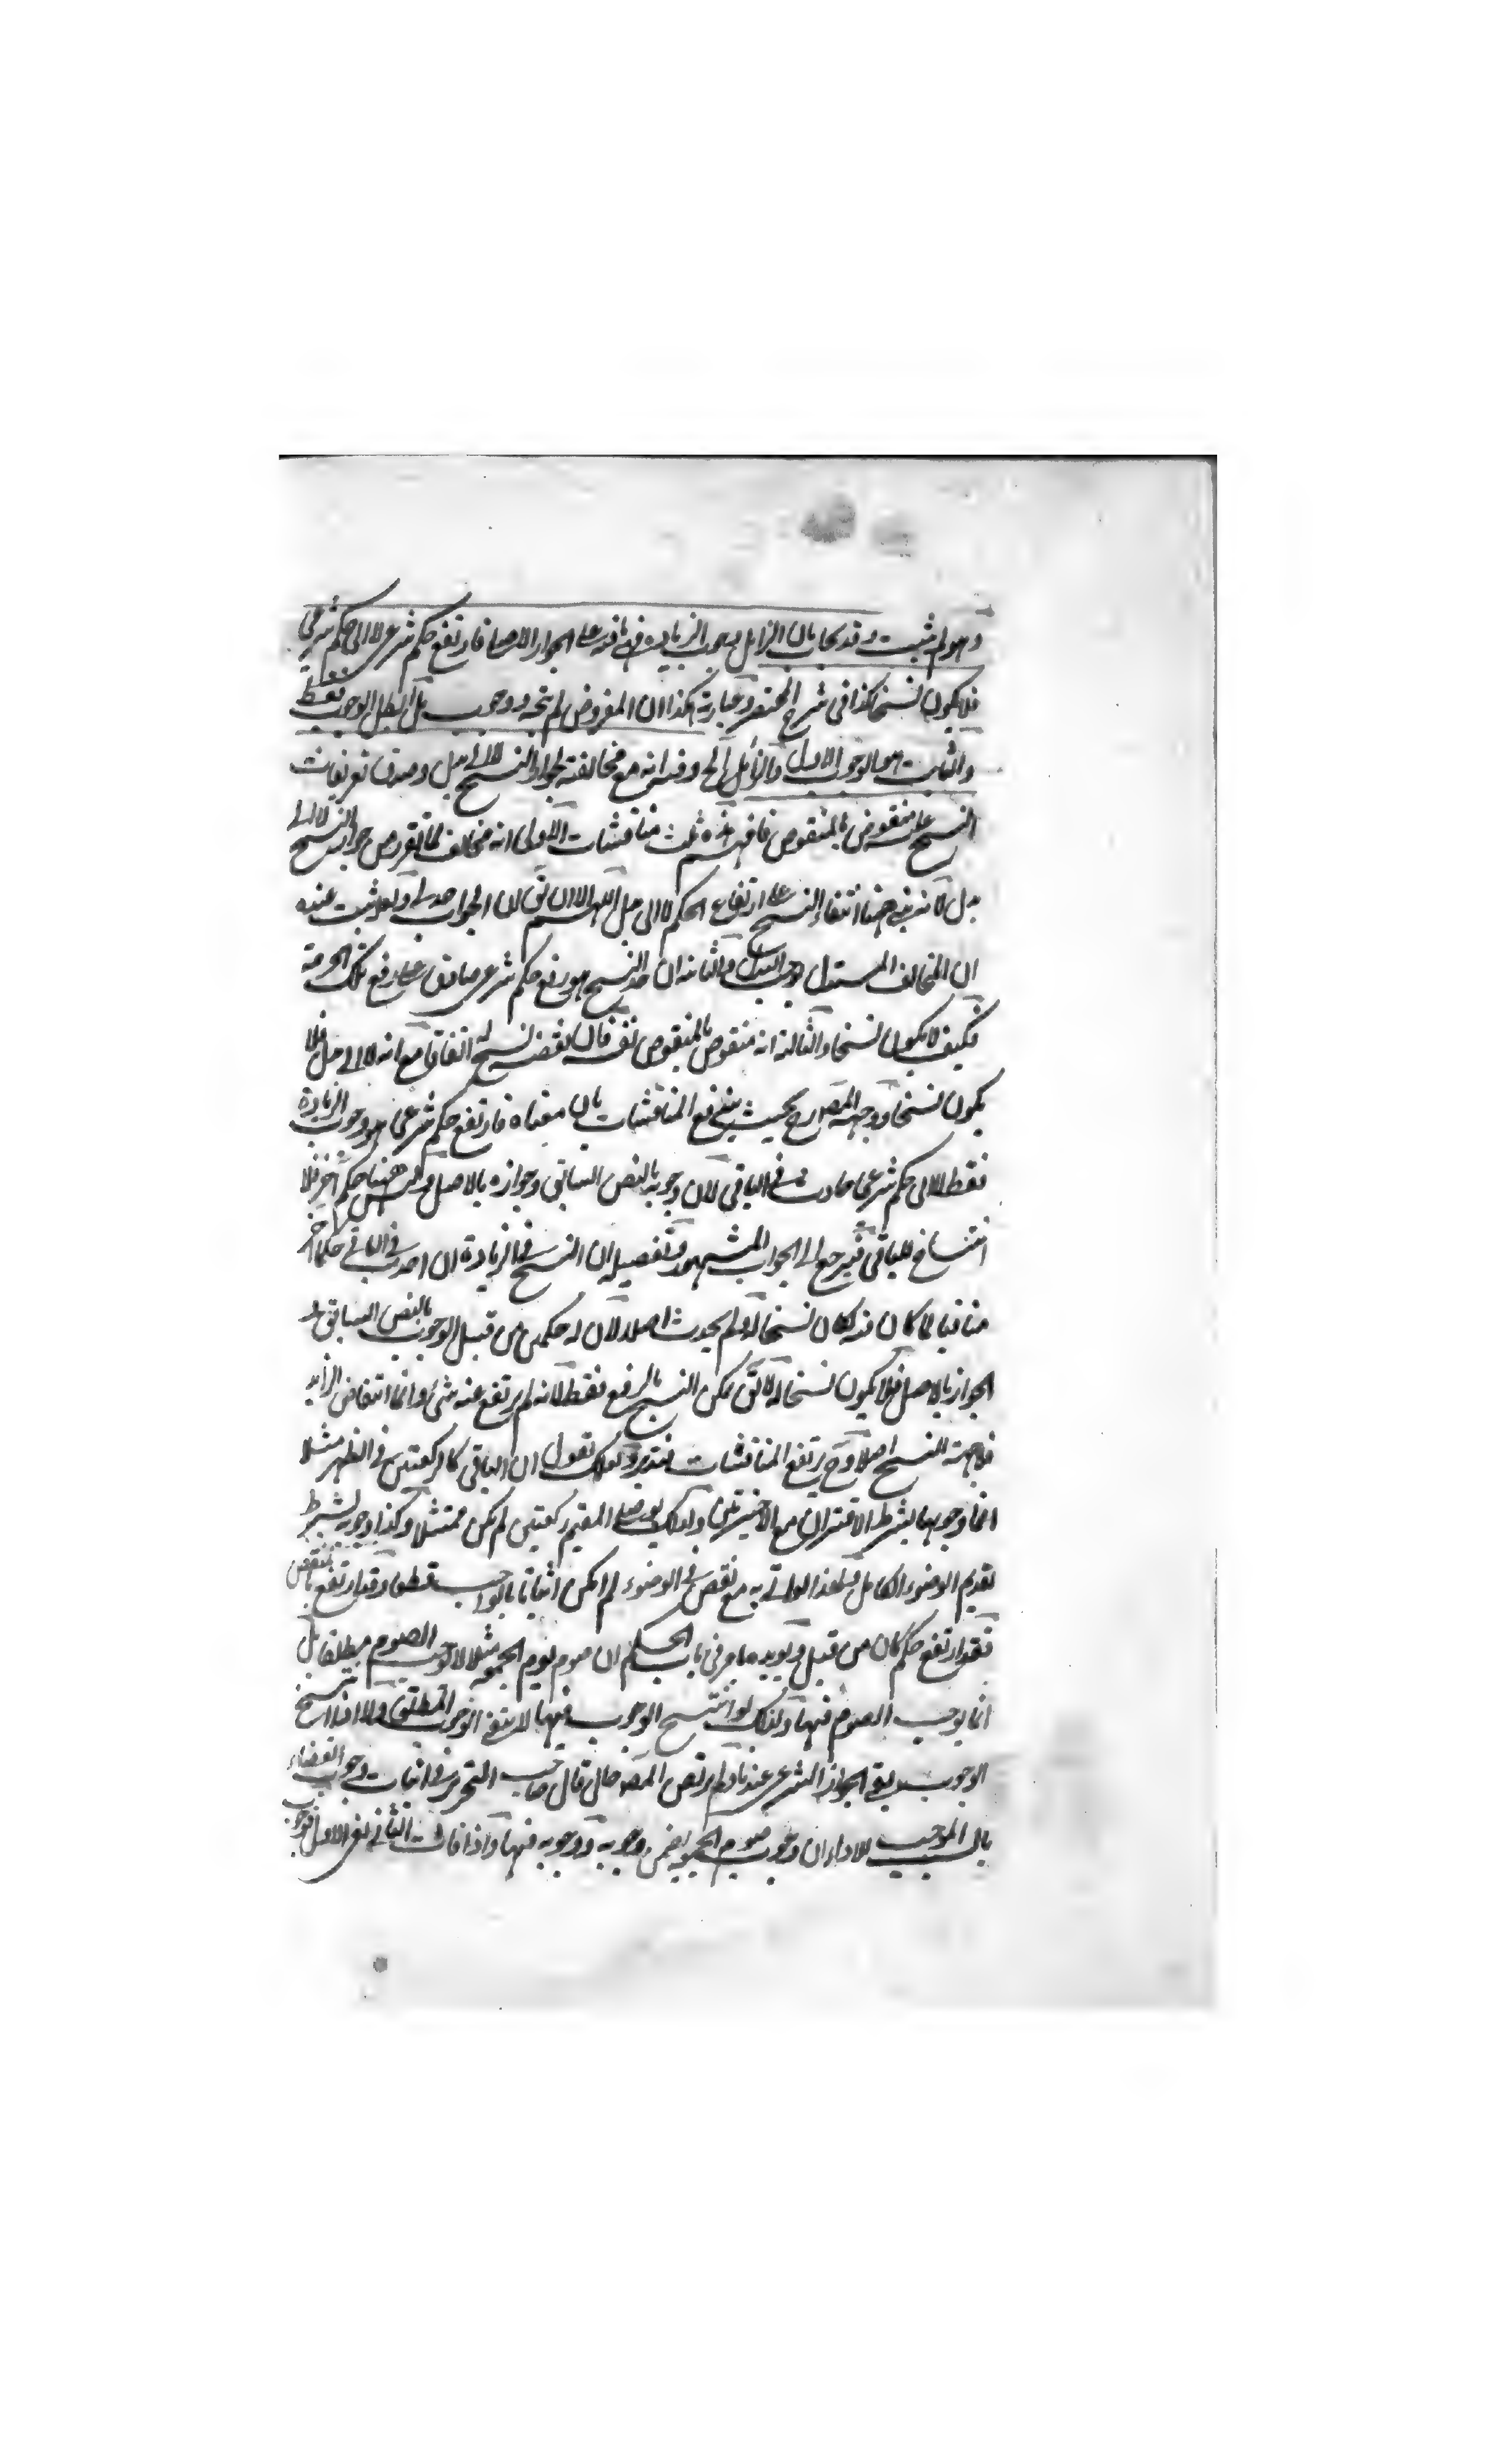 وهو لم يثبت وقد يجاب بان الزايل وجوب الزيادة فهي باقية على الجواز الاصلي فارتفع حكم شرعي لا الى حكم شرعي
فلا يكون نسخا كذا في شرح المختصر وعبارته هكذا ان المفروض لم يتجدد وجوب بل ابطل الوجوب فقط
والثابت هو الوجوب الاول والزائل الخ وفيه انه مع مخالفته لجواز النسخ لا الى بدل وصدق تعريفات
النسخ عليه منقوض بالمنقوص فافهم هذه ثلث مناقشات الاولى انه مخالف لما تقرر من جواز النسخ لا الى
بدل لانه بنى ههنا انتفاء النسخ على ارتفاع الحكم لا الى بدل اللهم الا ان يق ان الجواب جدلي ولعله ثبت عنده
ان المخالف المستدل يوجب البدل والثانية ان حد النسخ هو رفع حكم شرعي صادق على رفع تلك الحرمة
فكيف لا يكون نسخا والثالثة انه منقوض بالمنقوص نفسه فان نقضه نسخ له اتفاقا مع انه لا الى بدل فلا
يكون نسخا ووجهه المصـ رح بحيث يندفع المناقشات بان معناه فارتفع حكم شرعي هو وجوب الزيادة
فقط لا الى حكم شرعي حادث في الباقي لان وجوبه بالنص السابق وجوازه بالاصل وليس ههنا حكم آخر فلا
انتساخ للباقي فيرجع الى الجواب المشهور وتفصيله ان النسخ في الزيادة ان احدث في الباقي حكما آخر
منافيا لما كان فيه لكان نسخا له ولم يحدث اصلا لان له حكمين من قبل الوجوب بالنص السابق و
الجواز بالاصل فلا يكون نسخا له لا يق يمكن النسخ بالرفع فقط لانه لم يرتفع عنه شئ وانما انتقاض الزايد
فلا جهة للنسخ اصلا وح يرتفع المناقشات فتدبر ولعلك تقول ان الباقي كالركعتين في الظهر مثلا
انما وجوبها بشرط الاقتران مع الاخيرتين ولذلك لو صلى المقيم ركعتين لم يكن ممتثلا وكذا وجوبه بشرط
تقديم الوضوء الكامل ولهذا لو اتى به مع نقص في الوضوء لم يكن اتيانا بالواجب قطعا وقد ارتفع بالتنقيص
فقد ارتفع حكم كان من قبل ويؤيده ما مر في باب الحكم ان صوم يوم الجمعة مثلا لا يوجب الصوم مطلقا بل
انما يوجب الصوم فيها ولذلك لو انتسخ الوجوب فيها لا يبقى الوجوب المطلق والا فلا نسخ
الوجوب يبقى الجواز الشرعي عندنا ولم يرتض المصـ حال قال صاحب التحرير في اثبات وجوب القضاء
بالسبب الموجب للاداء ان وجوب صوم الجمعة يتضمن وجوبه ووجوبه فيها واذا فات الثاني بقى الاول فوجب